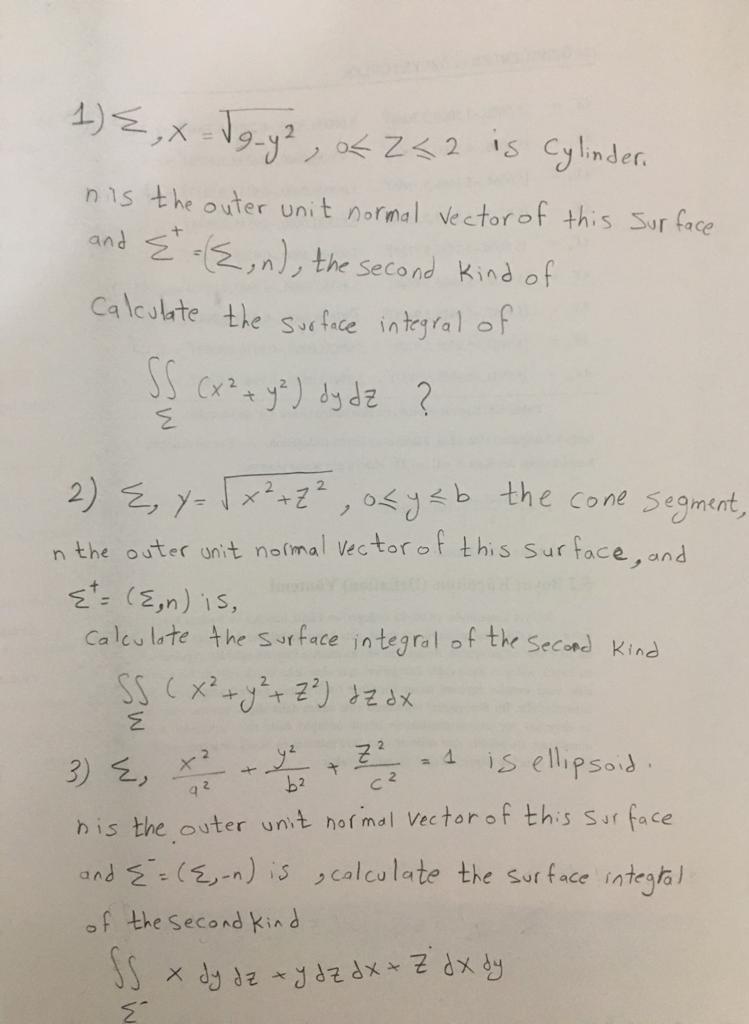 1) Σ, x = √9-y², 0≤ Z ≤ 2 is Cylinder.
n is the outer unit normal vector of this surface
and Σ⁺=(Σ,n), the second kind of
Calculate the surface integral of
∬ (x² + y²) dy dz ?
Σ
2) Σ, y = √x²+z², 0≤y≤b the cone segment,
n the outer unit normal vector of this surface, and
Σ⁺= (Σ,n) is,
Calculate the surface integral of the second kind
∬ (x²+y²+z²) dz dx
Σ
3) Σ, x²/a² + y²/b² + z²/c² = 1 is ellipsoid.
n is the outer unit normal vector of this surface
and Σ⁻=(Σ,-n) is , calculate the surface integral
of the second kind
∬ x dy dz + y dz dx + z dx dy
Σ⁻